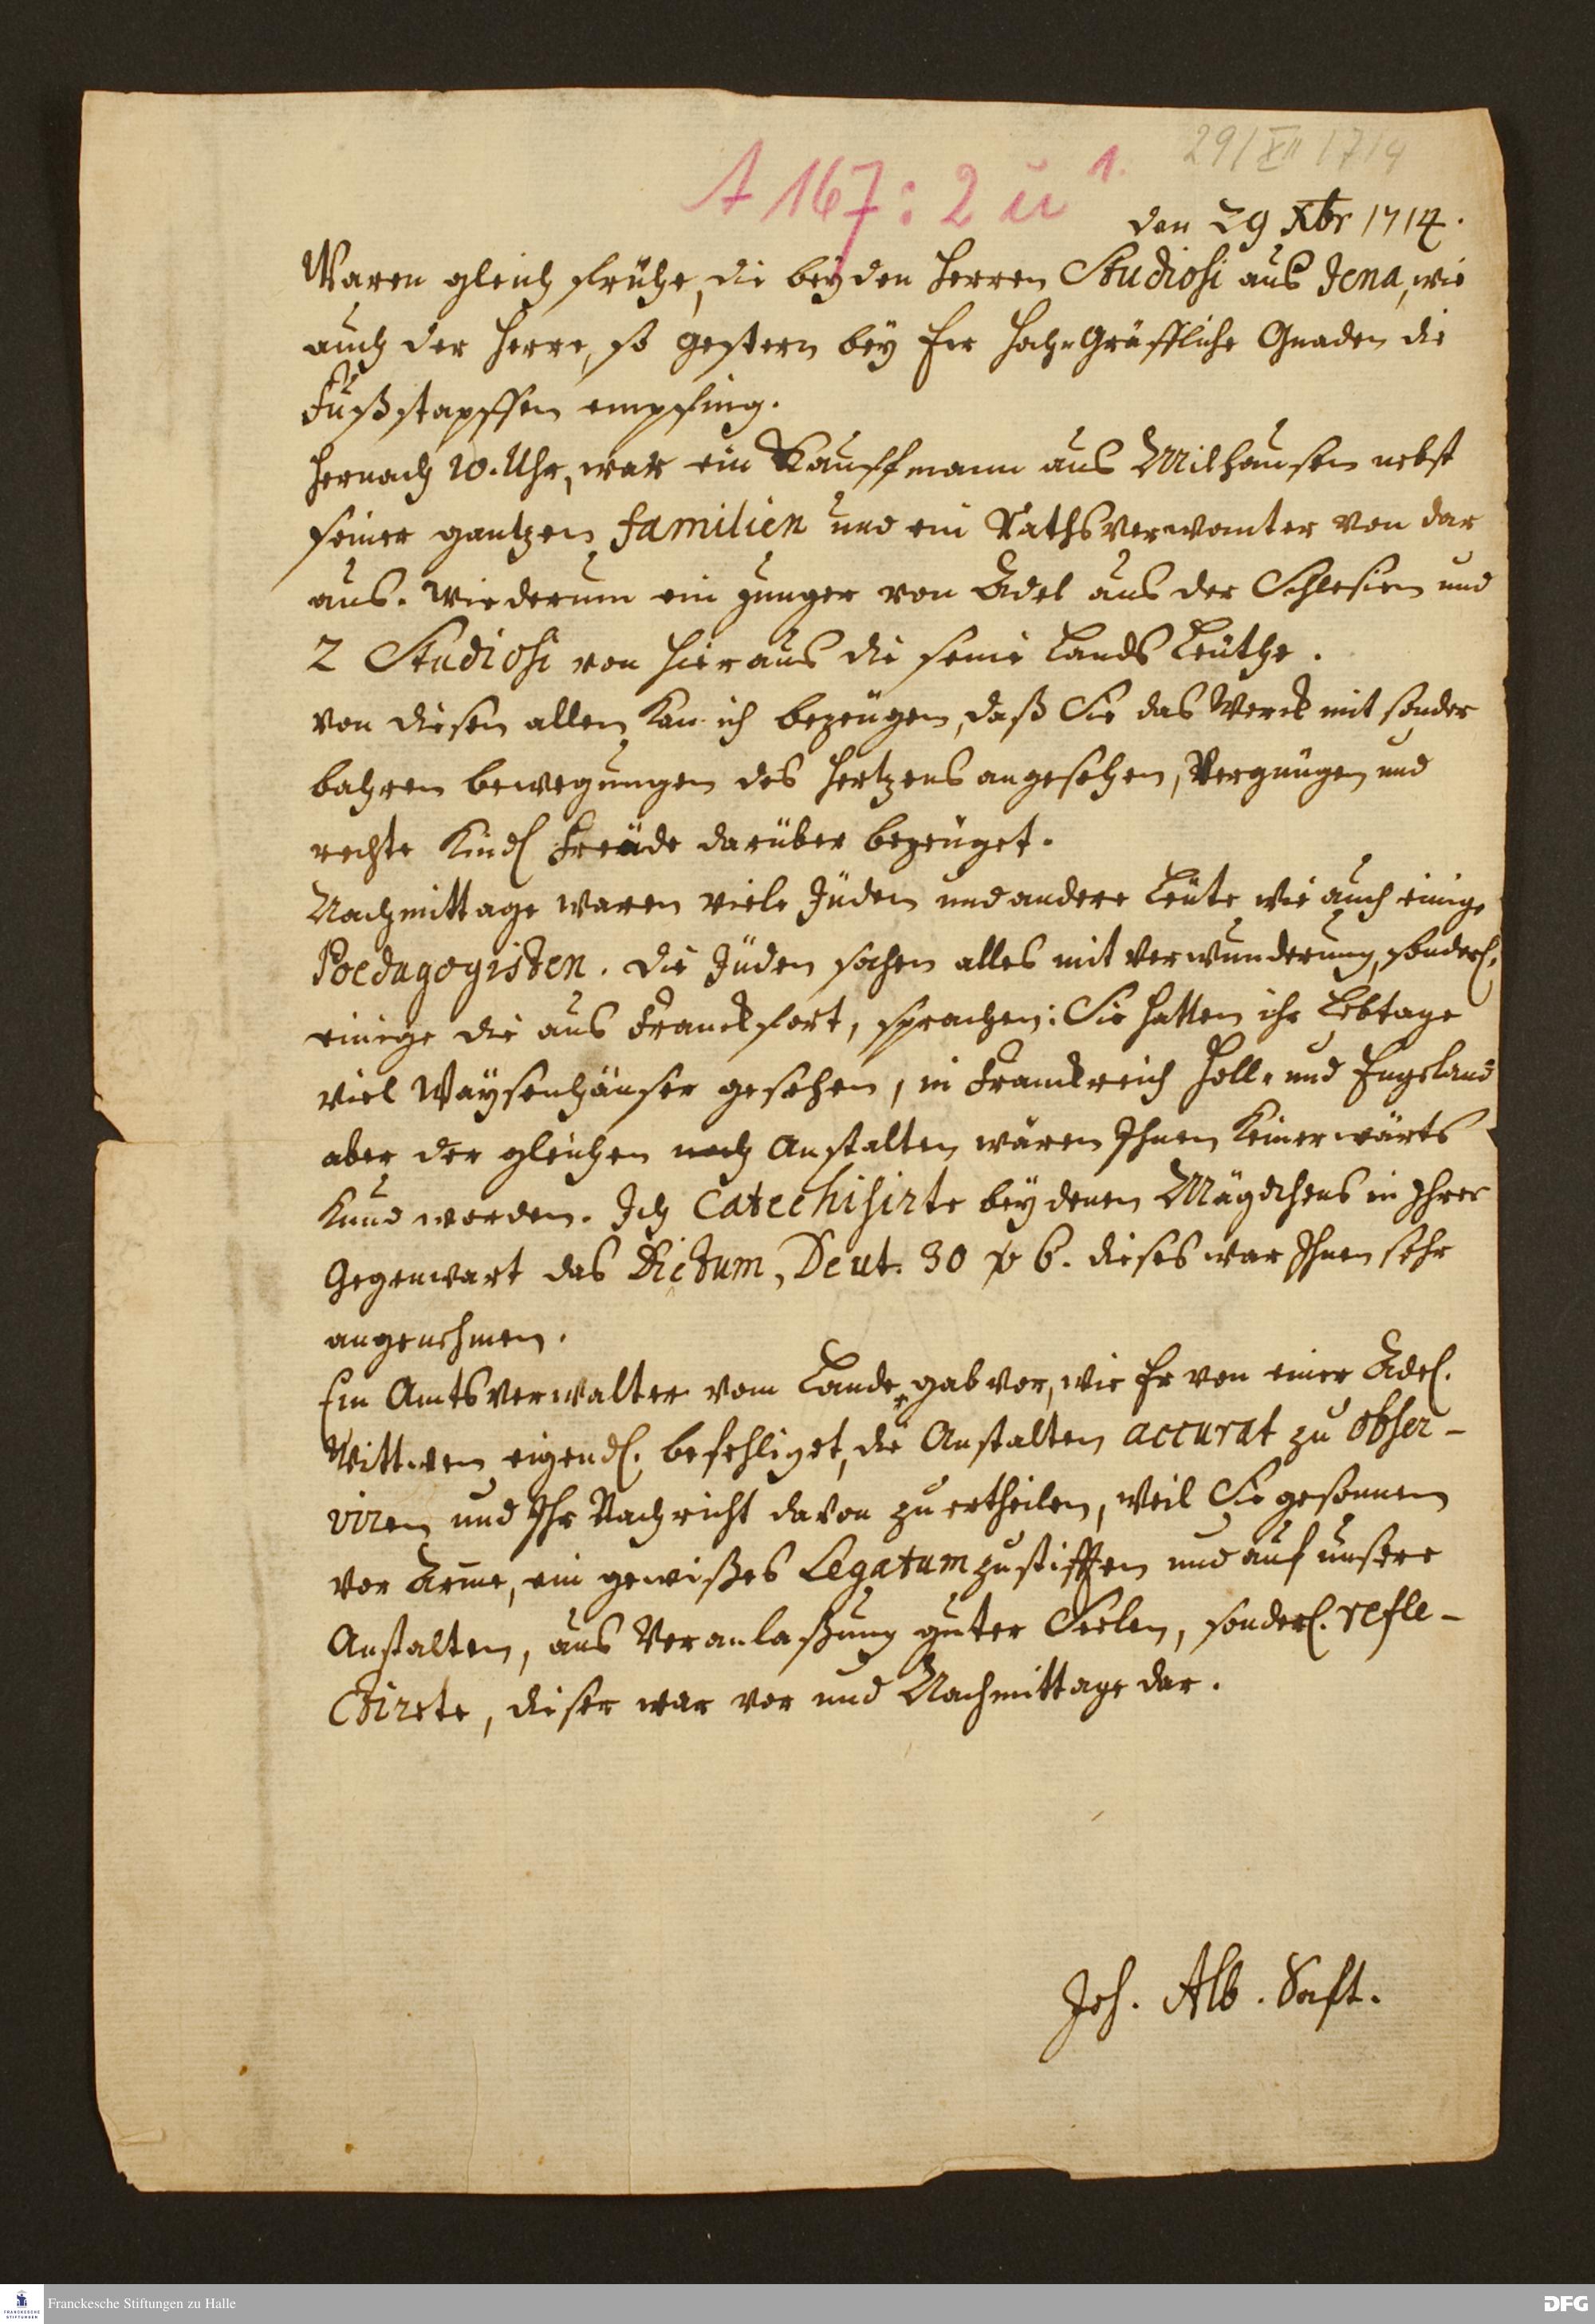 29/XII 1714
A 167 : 2 u 1.
den 29 Xbr 1714.
Waren gleich frühe, die beyden Herren Studiosi aus Jena, wie
auch der Herre, so gestern bey Hoch-Gräffliche Gnaden die
Fußstapffen empfing.
Hernach 10. Uhr, war ein Kauffmann aus Milhausen nebst
seiner gantzen familien und ein Rathsverwanter von dar
aus. Wiederum ein junger von Adel aus der Schlesien und
2 Studiosi von hieraus die seine Lands Leuthe.
von diesen allen kan ich bezeugen, daß Sie das Werck mit sonder
bahren bewegungen des Hertzens angesehen, Vergnügen und
rechte Kindl Freude darüber bezeuget.
Nachmittage waren viele Jüden und andere Leute wie auch einige
Poedagogisten. Die Jüden sahen alles mit Verwunderung, sonderl.
einige die aus Franckfort, sprachen: Sie hatten ihr Lebtage
viel Waysenhäuser gesehen, in Franckreich Holl- und Engeland
aber der gleichen noch Anstalten wären Ihnen keinerwärts
kund worden. Ich Catechisirte bey denen Mägdchens in Ihrer
Gegenwart das Dictum, Deut. 30 v 6. dieses war Ihnen sehr
angenehmen.
Ein Amtsverwalter vom Lande, gab vor, wie Er von einer Adel.
Wittwen eigendl. befehliget, die Anstalten accurat zu obser-
viren und Ihr Nachricht davon zu ertheilen, weil Sie gesonnen
vor Arme, ein gewißes Legatum zu stifften und auf unsere
Anstalten, aus Veranlaßung guter Seelen, sonderl. refle-
ctirete, dieser war vor und Nachmittage dar.
Joh. Alb. Saft.
Franckesche Stiftungen zu Halle
FRANCKESCHE
STIFTUNGEN
DFG